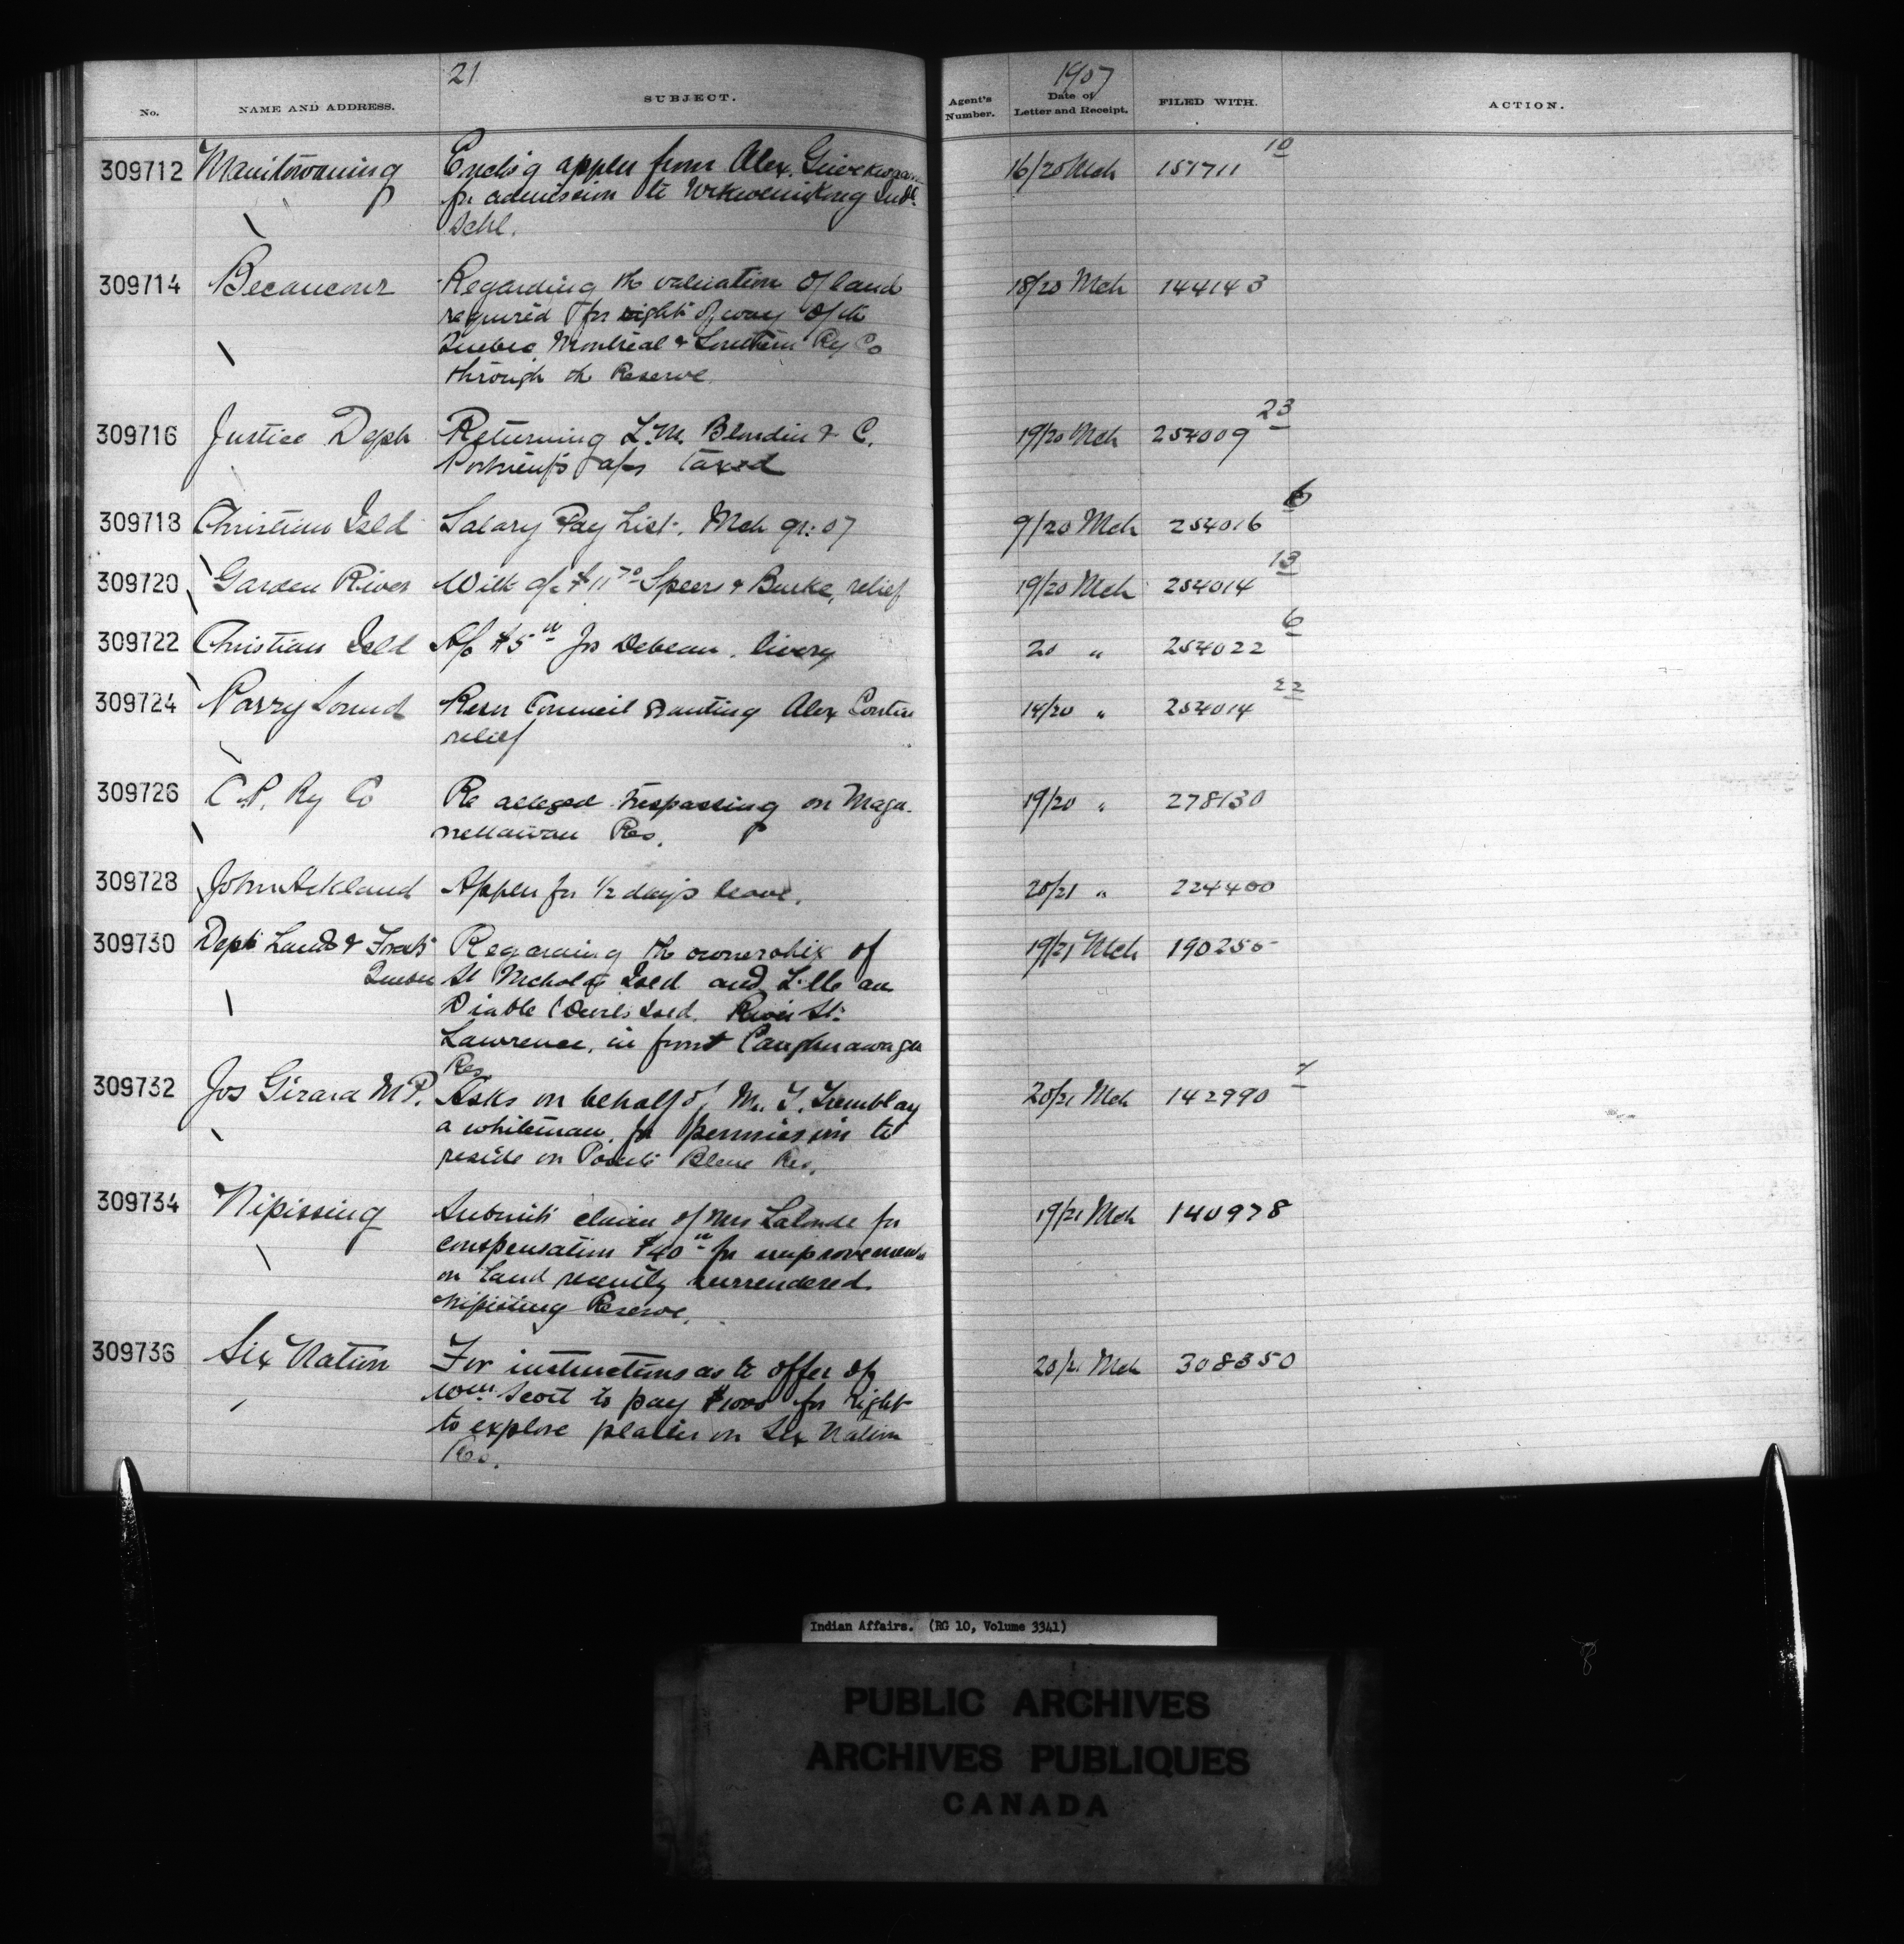 21
1907
No. NAME AND ADDRESS. SUBJECT. Agent's Number. Date of Letter and Receipt. FILED WITH. ACTION.
309712 Manitowaning Enclo'g applcn from Alex. 16/20 Mch 151711 10
for admission to Wikwemikong Indl
Schl.
309714 Becancour Regarding the valuation of land 18/20 Mch 144143
required for right of way of the
Quebec, Montreal & Southern Ry Co
through the Reserve.
309716 Justice Dept Returning L.M. Blondin & C. 19/20 Mch 254009 23
a/cs taxed
309718 Christian Isld Salary Pay List. Mch qr: 07 9/20 Mch 254016 6
309720 Garden River With a/c $11 70 Speers & Burke, relief 19/20 Mch 254014 13
309722 Christian Isld A/c $5 00 Jos Debeau. livery 20 " 254022 6
309724 Parry Sound Resn Council granting Alex 14/20 " 254014 22
relief
309726 C.P. Ry Co Re alleged trespassing on Maga- 19/20 " 278130
nettawan Res.
309728 John Ackland Applcn for 1/2 day's leave. 20/21 " 224400
309730 Dept Lands & Forests Regarding the ownership of 19/21 Mch 190255
Quebec St Nicholas Isld and L'Ile au
Diable (Devils Isld. River St.
Lawrence, in front Caughnawaga
Res
309732 Jos Girard M P. Asks on behalf of Mr. T. Tremblay 20/21 Mch 142990 7
a whiteman, for permission to
reside on Pointe Bleue Res.
309734 Nipissing Submits claim of Mrs Lalonde for 19/21 Mch 140978
compensation $40 00 for improvements
on land recently surrendered
Nipissing Reserve.
309736 Six Nation For instructions as to offer of 20/21 Mch 308350
Wm Scott to pay $1000 for right
to explore plaster on Six Nation
Res.
Indian Affairs. (RG 10, Volume 3341)
PUBLIC ARCHIVES
ARCHIVES PUBLIQUES
CANADA